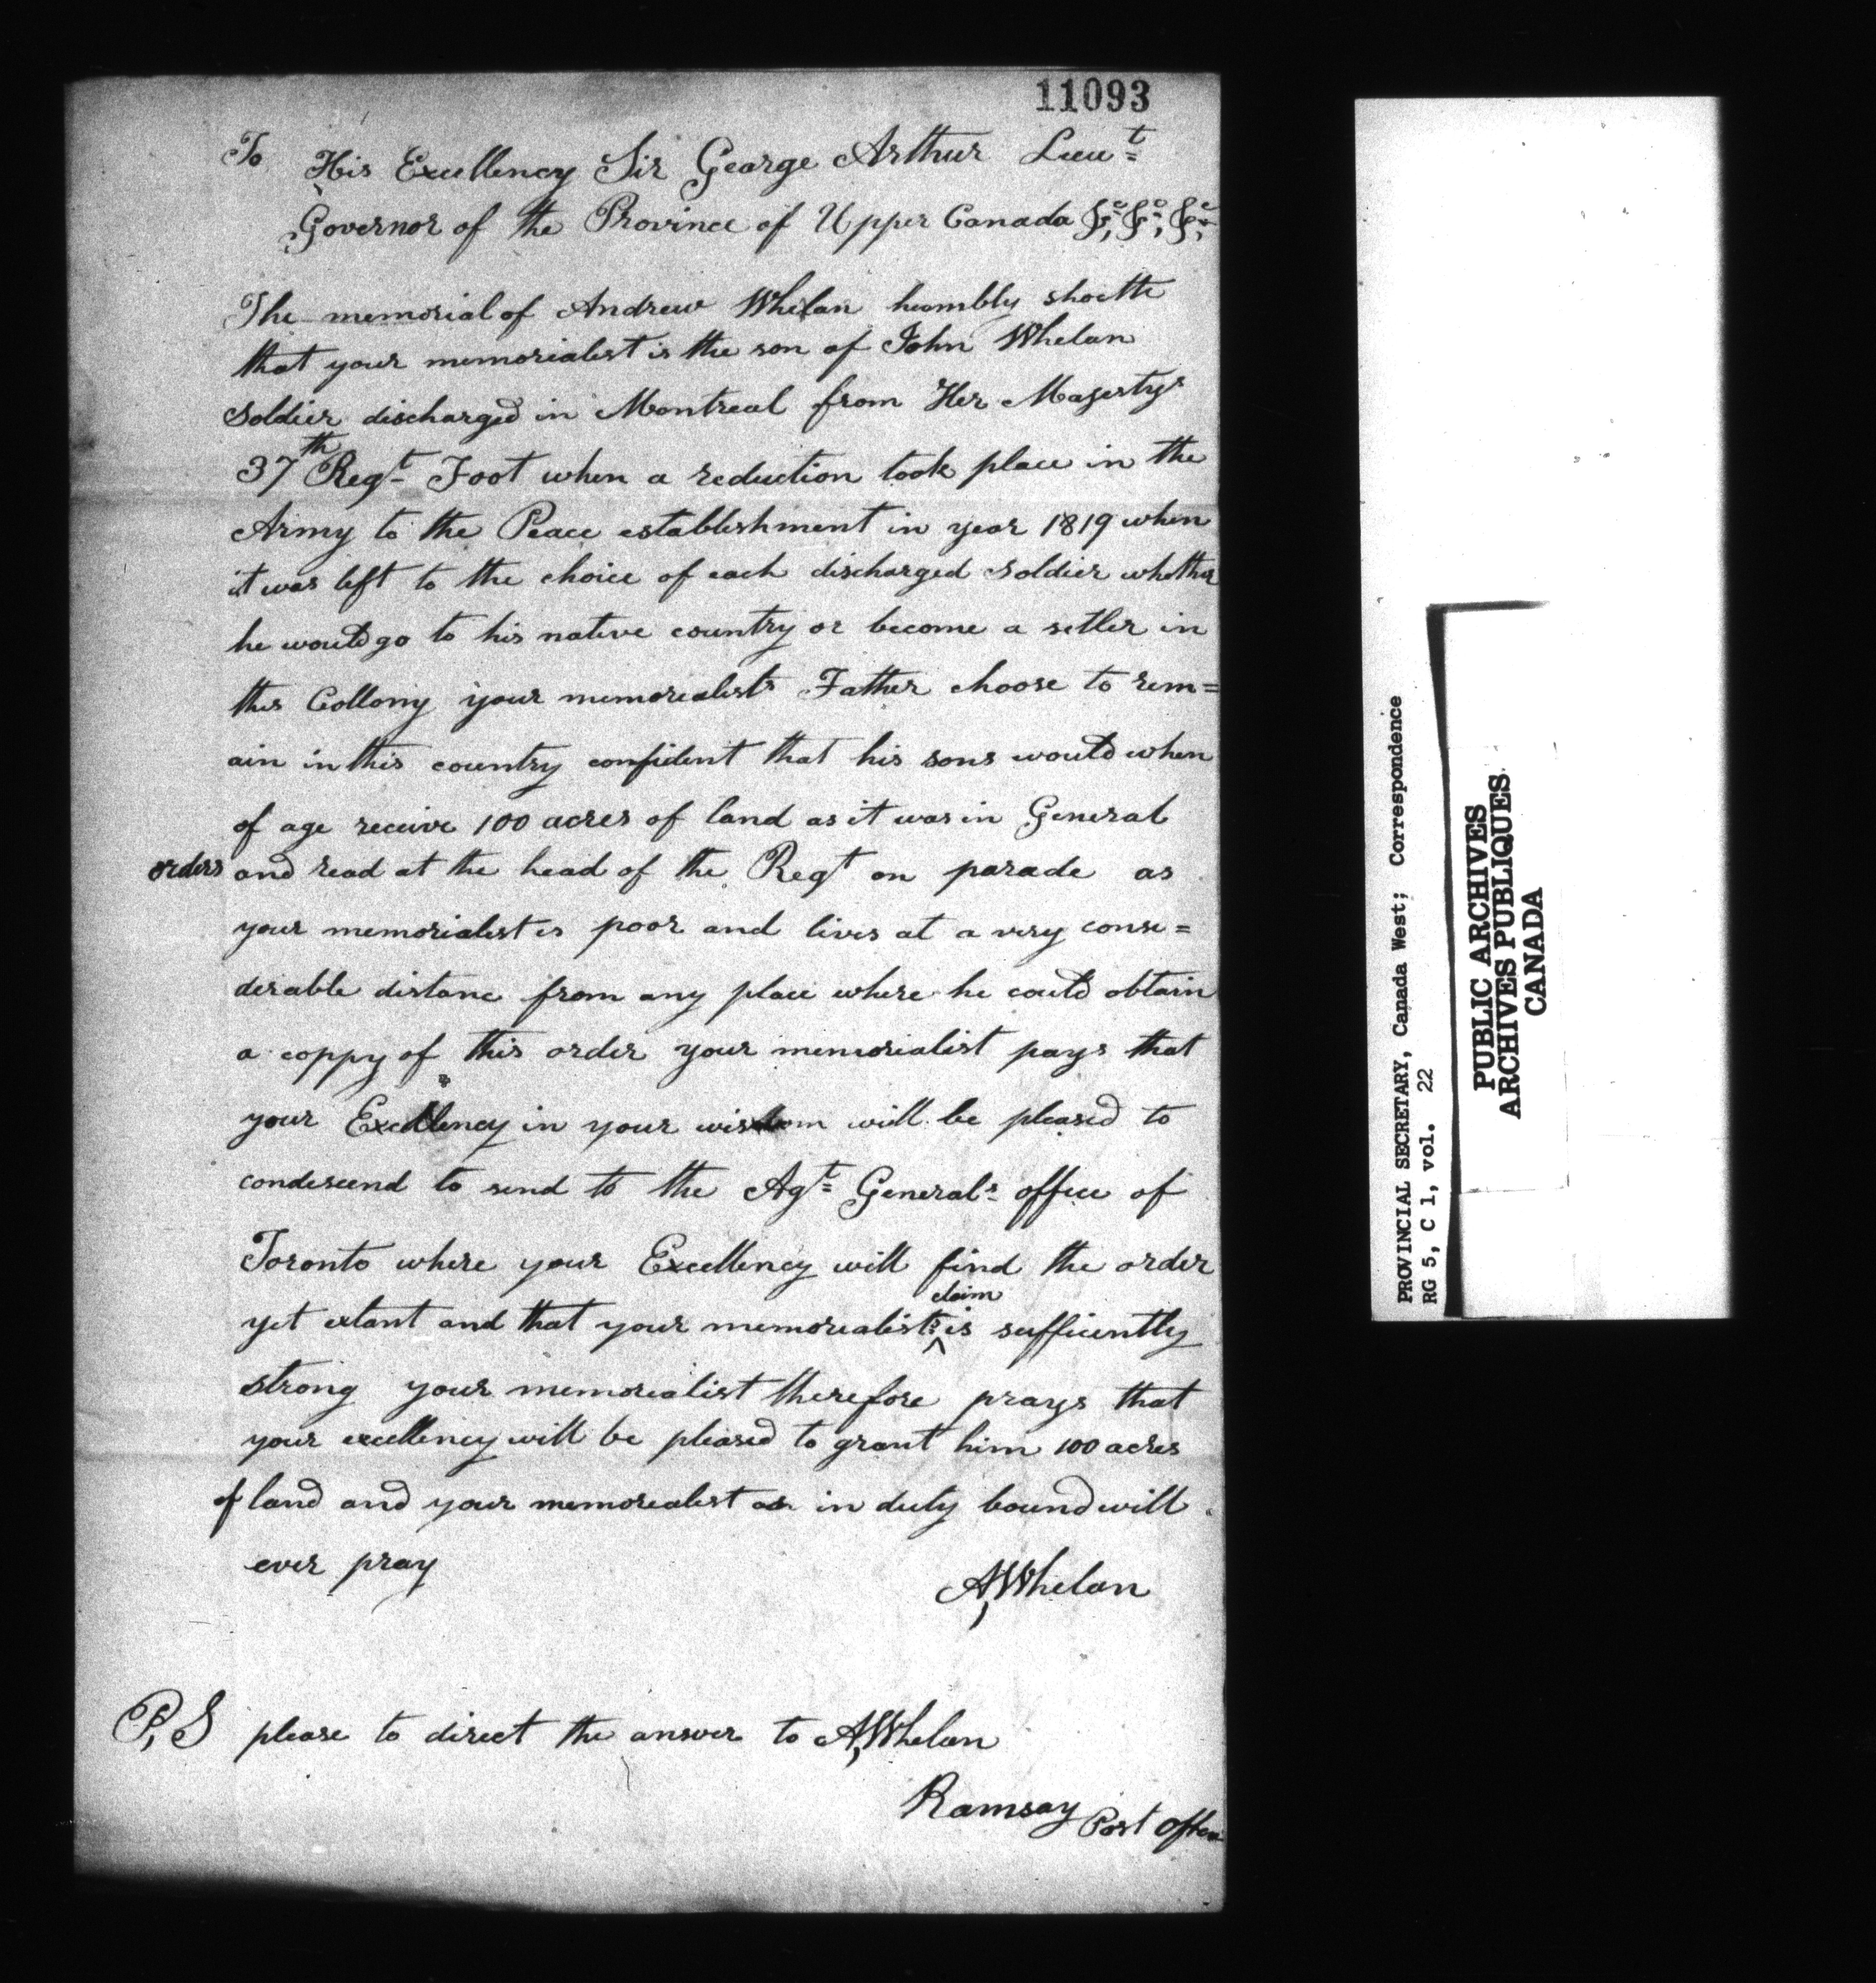 11093
To His Excellency Sir George Arthur Lieut
Governor of the Province of Upper Canada &c, &c, &c,
The memorial of Andrew Whelan humbly shoeth
that your memorialist is the son of John Whelan
Soldier discharged in Montreal from Her Magestys
37th Regt Foot when a reduction took place in the
Army to the Peace establishment in year 1819 when
it was left to the choice of each discharged soldier whether
he would go to his native country or become a setler in
this Collony your memorialists Father choose to rem=
ain in this country confident that his sons would when
of age receive 100 acres of land as it was in General
orders and read at the head of the Regt on parade as
your memorialist is poor and lives at a very consi=
derable distanc from any place where he could obtain
a coppy of this order your memorialist pays that
your Excellency in your wisdom will be pleased to
condescend to send to the Agt Generals office of
Toronto where your Excellency will find the order
yet extant and that your memorialists claim is sufficently
strong your memorialist therefore prays that
your excellency will be pleased to grant him 100 acres
of land and your memorialist as in duty bound will
ever pray
A, Whelan
P, S please to direct the answer to A, Whelan
Ramsay Post Office
PROVINCIAL SECRETARY, Canada West; Correspondence
RG 5, C 1, vol. 22
PUBLIC ARCHIVES
ARCHIVES PUBLIQUES
CANADA